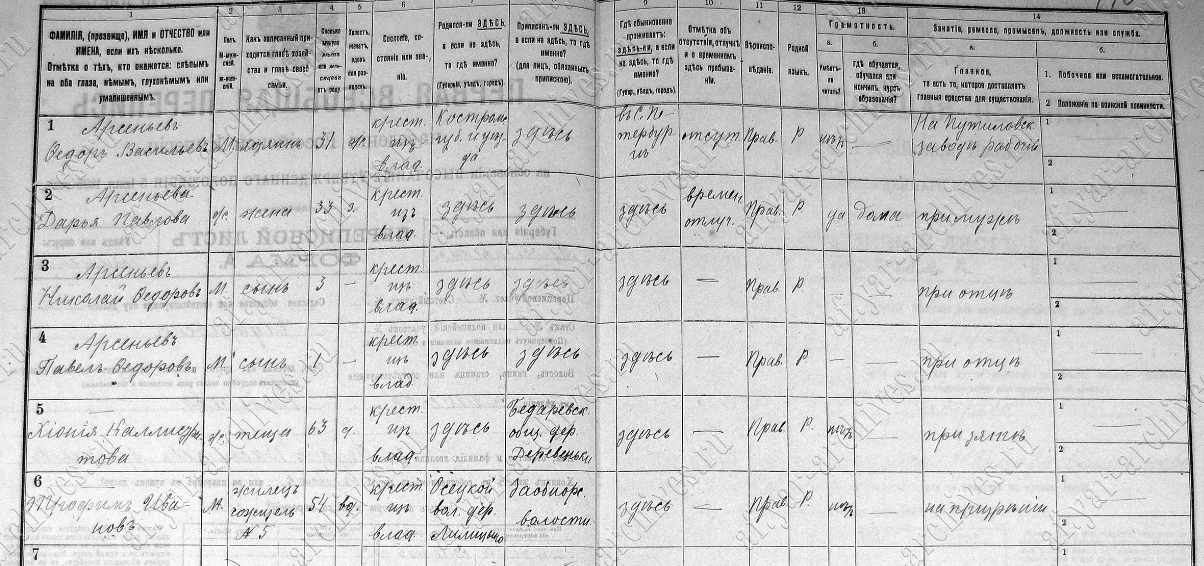 1 2 3 4 5 6 7 8 9 10 11 12 13 14
ФАМИЛІЯ, (прозвище), ИМЯ и ОТЧЕСТВО или ИМЕНА, если ихъ нѣсколько.
Отмѣтка о тѣхъ, кто окажется: слѣпымъ на оба глаза, нѣмымъ, глухонѣмымъ или умалишеннымъ.
Какъ записанный приходится главѣ хозяйства и главѣ своей семьи.
Сословіе, состояніе или званіе.
Родился-ли ЗДѢСЬ, а если не здѣсь, то гдѣ именно?
(Губернія, уѣздъ, городъ).
Приписанъ-ли ЗДѢСЬ, а если не здѣсь, то гдѣ именно?
(для лицъ, обязанныхъ припискою).
Гдѣ обыкновенно проживаетъ: здѣсь-ли, а если не здѣсь, то гдѣ именно?
(Губер., уѣздъ, городъ).
Отмѣтка объ отсутствіи, отлучкѣ и о временномъ здѣсь пребываніи.
Вѣроисповѣданіе.
Родной языкъ.
Грамотность.
а. б.
гдѣ обучается, обучался или кончилъ курсъ образованія?
Занятіе, ремесло, промыселъ, должность или служба.
а. б.
Главное,
то есть то, которое доставляетъ главныя средства для существованія.
1. Побочное или вспомогательное.
2 Положеніе по воинской повинности.
1 Арсеньевъ Ѳедоръ Васильевъ М. хозяинъ крест. изъ влад. Костром. губ. и уѣзда здѣсь въ С. Петербургѣ отсут. Прав. Р нѣтъ — На Путиловск. заводѣ рабочій 1 2
2 Арсеньева Дарья Павлова ж. жена 33 крест. изъ влад. здѣсь здѣсь здѣсь времен. отлуч. Прав. Р да дома при мужѣ 1 2
3 Арсеньевъ Николай Ѳедоровъ М. сынъ 3 — крест. изъ влад. здѣсь здѣсь здѣсь — Прав Р — при отцѣ 1 2
4 Арсеньевъ Павелъ Ѳедоровъ М сынъ 1 — крест. изъ влад здѣсь здѣсь здѣсь — Прав. Р — при отцѣ 1 2
5 Хіонія Каллистратова ж. теща 63 крест. изъ влад здѣсь общ. дер. Деревеньки здѣсь — Прав Р. нѣтъ — при зятѣ 1 2
6 Ивановъ М. жилецъ № 5 54 вд. крест изъ влад. Осецкой вол. дер. волости здѣсь — Прав. Р. нѣтъ — 1 2
7 1
yar-archives.ru